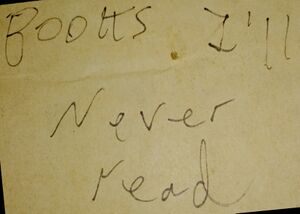 Books I'll
Never
read